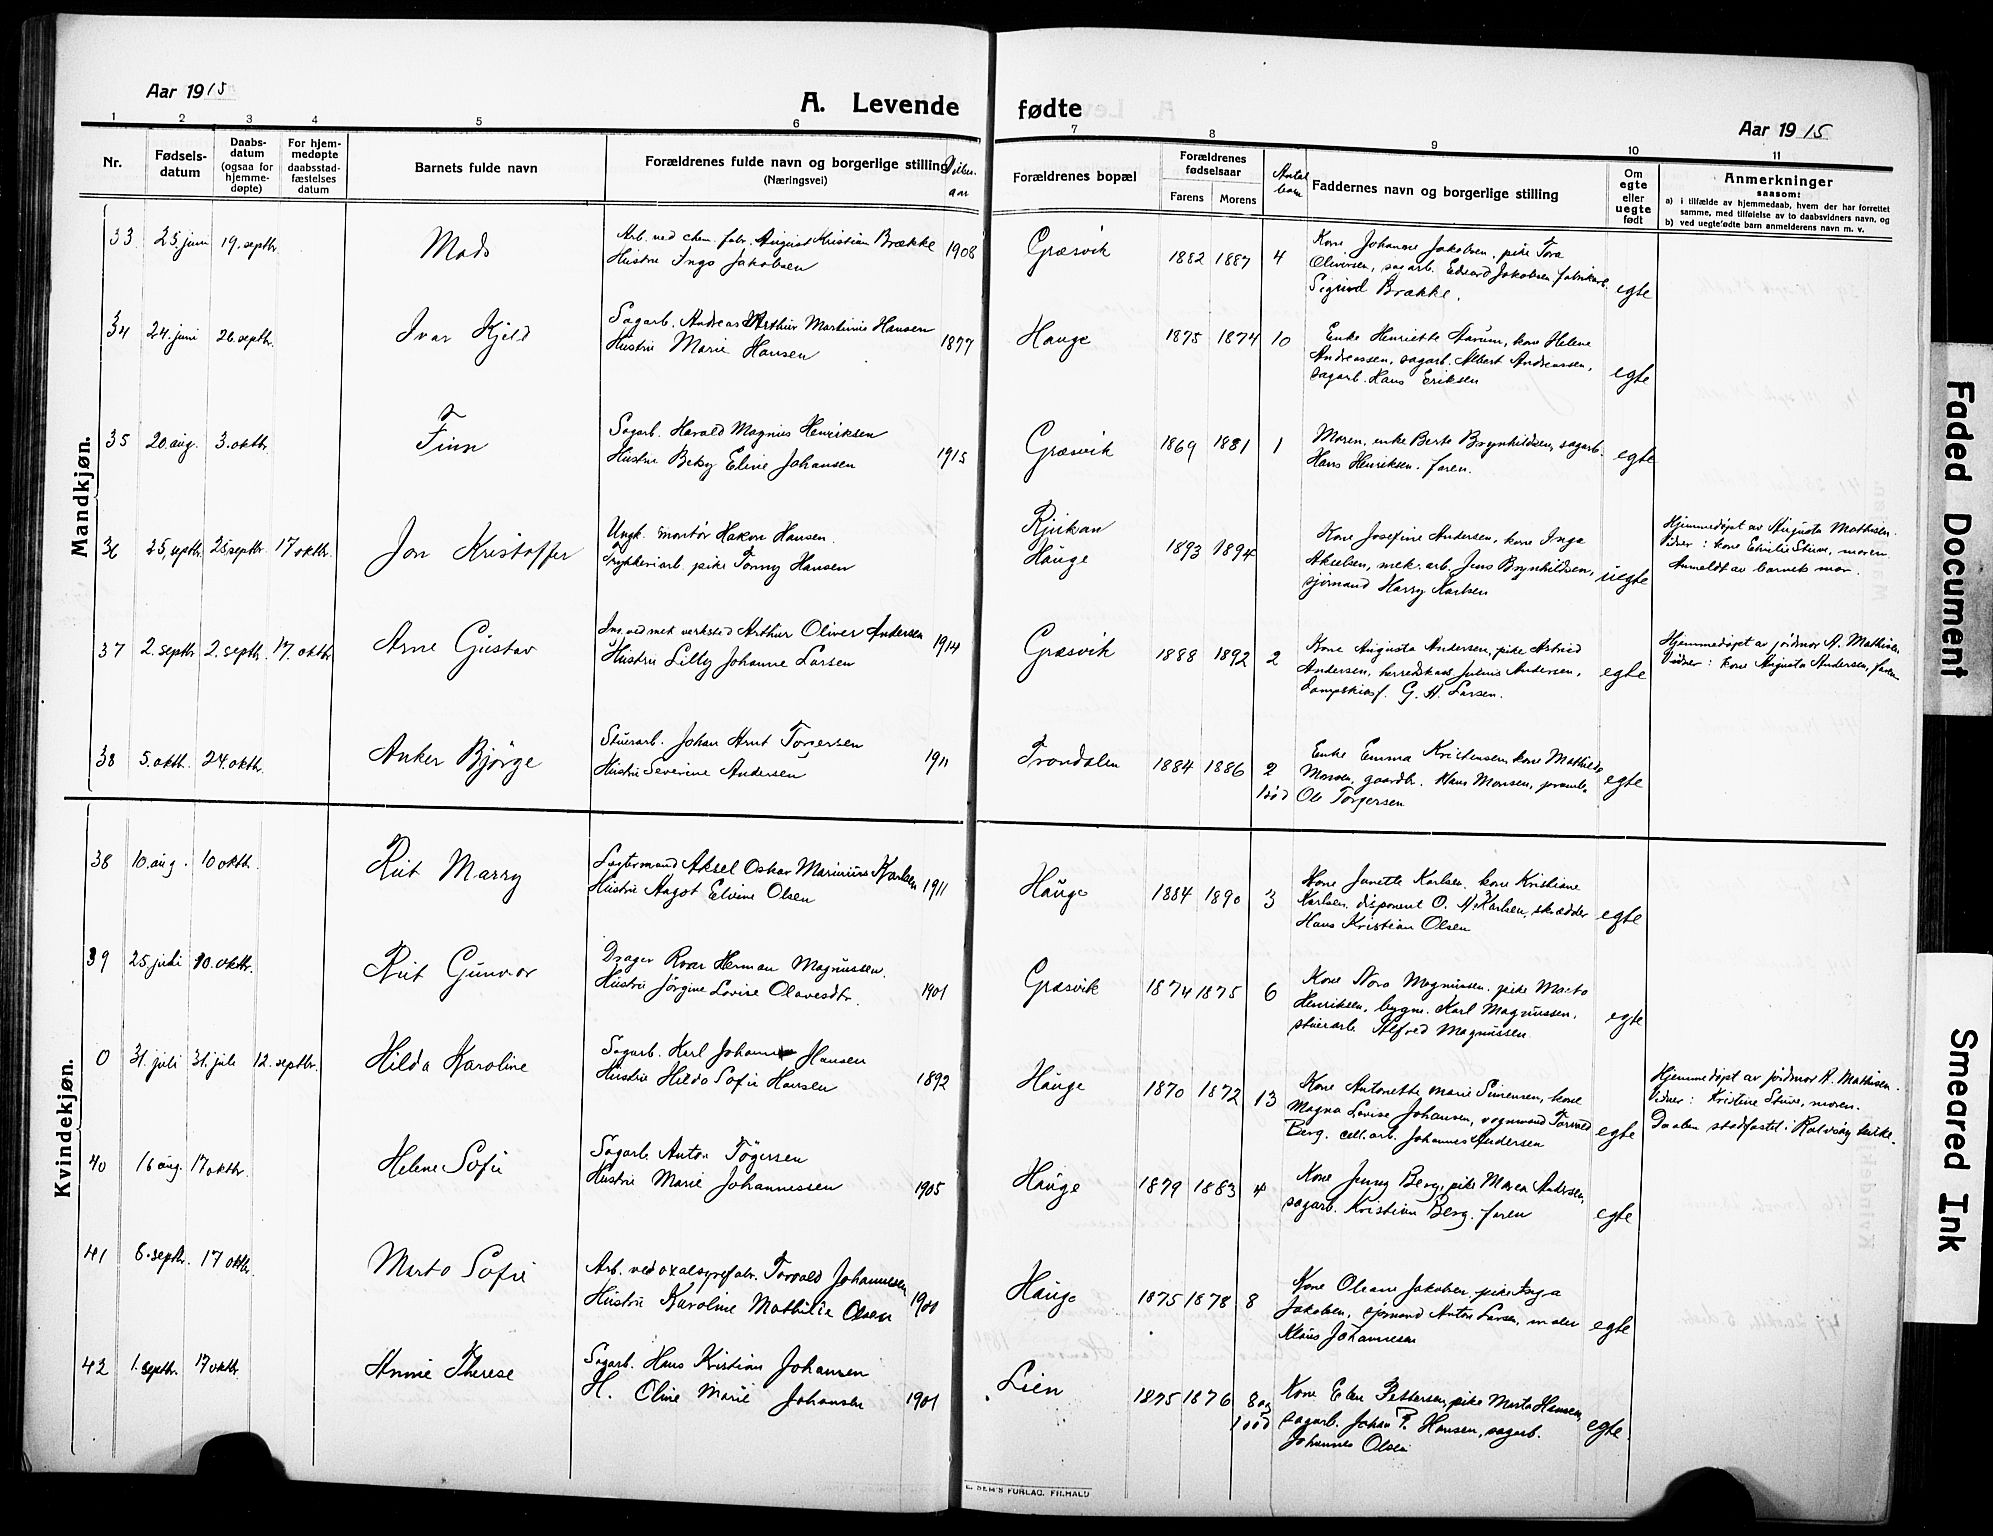 Aar 1915
A. Levende fødte
Aar 1915
1 2 3 4 5 6 7 8 9 10 11
Nr.
Fødsels-
datum
Daabs-
datum
(ogsaa for
hjemme-
døpte)
For hjem-
medøpte
daabsstad-
fæstelses
datum
Barnets fulde navn
Forældrenes fulde navn og borgerlige stilling
(Næringsvei)
Vielses-
aar
Forældrenes bopæl
Forældrenes
fødselsaar
Farens Morens
Antal
barn
Faddernes navn og borgerlige stilling
Om
egte
eller
uegte
født
Anmerkninger
saasom:
a) i tilfælde av hjemmedaab, hvem der har forrettet
samme, med tilføielse av to daabsvidners navn, og
b) ved uegtefødte barn anmelderens navn m. v.
Mandkjøn.
33 25. juni 19. septbr. Mads
Arb. ved chem. fabr. August Kristian Brække
Hustru Inga Jakobsen 1908
Græsvik 1882 1887 4
Kone Johanne Jakobsen, pike Tora
Oliversen, sagarb. Edvard Jakobsen, fabrikarb.
Sigurd Brække. egte
34 24. juni 26. septbr. Ivar Kjeld
Sagarb. Andreas Arthur Martinius Hansen
Hustru Marie Hansen 1877
Hauge 1875 1874 10
Enke Henriette Aarum, kone Helene
Andreassen, sagarb. Albert Andreassen,
sagarb. Hans Eriksen egte
35 20. aug. 3. oktbr. Finn
Sagarb. Harald Magnus Henriksen
Hustru Betsy Eline Johansen 1915
Græsvik 1869 1881 1
Moren, enke Berte Brynhildsen, sagarb.
Hans Henriksen. faren. egte
36 25. septbr. 25 septbr. 17 oktbr. Jon Kristoffer
Ungk. montør Hakon Hansen.
Trykkeriarb. pike Tomny Hansen
Rjukan
Hauge 1893 1894
Kone Josefine Andersen, kone Inga
Akselsen, mek. arb. Jens Brynhildsen,
sjømand Harry Karlsen uegte
Hjemmedøpt av Augusta Mathisen.
Vidner: kone Emilie Stuve, moren.
Anmeldt av barnets mor.
37 2. septbr. 2. septbr. 17. oktbr. Arne Gustav
ved mek verksted Arthur Oliver Andersen
Hustru Lilly Johanne Larsen 1914
Græsvik 1888 1892 2
Kone Augusta Andersen, pike Astrid
Andersen, herredskas Julius Andersen,
G. A. Larsen. egte
Hjemmedøpt av jordmor A. Mathisen
Vidner: kone Augusta Andersen, faren
38 5. oktbr. 24. oktbr. Anker Bjørge
Stuerarb. Johan Arnt Torgersen
Hustru Severine Andersen 1911
Trondalen 1884 1886 2
1 død
Enke Emma Kristensen, kone Mathilde
Monsen, gaardbr. Hans Monsen,
Ole Torgersen egte
Kvindekjøn.
38 10. aug. 10 oktbr. Rut Marry
Lagtermand Aksel Oskar Marinius Karlsen
Hustru Aagot Elvine Olsen 1911
Hauge 1884 1890 3
Kone Janette Karlsen, kone Kristiane
Karlsen, disponent O. M. Karlsen, skrædder
Hans Kristian Olsen egte
39 25 juli 10. oktbr. Rut Gunvor
Drager Roar Herman Magnussen.
Hustru Jørgine Lovise Olavesdtr. 1901
Græsvik 1874 1875 6
Kone Nora Magnussen, pike Marta
Henriksen, bygm. Karl Magnussen,
stuerarb Alfred Magnussen egte
0 31 juli 31. juli 12. septbr. Hilda Karoline
Sagarb. Karl Johan Hansen
Hustru Hilda Sofie Hansen 1892
Hauge 1870 1872 13
Kone Antonette Marie Simensen, kone
Magna Lovise Johansen, vognmand Torvald
Berg. cell. arb. Johannes Andersen egte
Hjemmedøpt av jordmor A. Mathisen.
Vidner: Kristine Stuve, moren.
Daaben stadfæstet i Rolvsøy kirke.
40 16 aug. 17 oktbr. Helene Sofie
Sagarb Anton Tøgersen
Hustru Marie Johannessen 1905
Hauge 1879 1883 4
Kone Jenny Berg, pike Maren Andersen,
sagarb. Kristian Berg. faren egte
41 6. septbr. 17 oktbr. Marta Sofie
Arb. ved oxalsyrefabr. Torvald Johannessen
Hustru Karoline Mathilde Olsen 1901
Hauge 1875 1878 8
Kone Oleane Jakobsen, pike Inga
Jakobsen, sjømand Anton Larsen, maler
Klaus Johannessen egte
42 1. septbr. 17 oktbr. Annie Therese
Sagarb. Hans Kristian Johansen
H. Oline Marie Johansen 1901
Lien 1875 1876 8 og
1 død
Kone Elen Pettersen, pike Marta Hansen,
sagarb. Johan P. Hansen, sagarb.
Johannes Olsen egte.
E. SEM'S FORLAG. FR.HALD
Faded Document
Smeared Ink